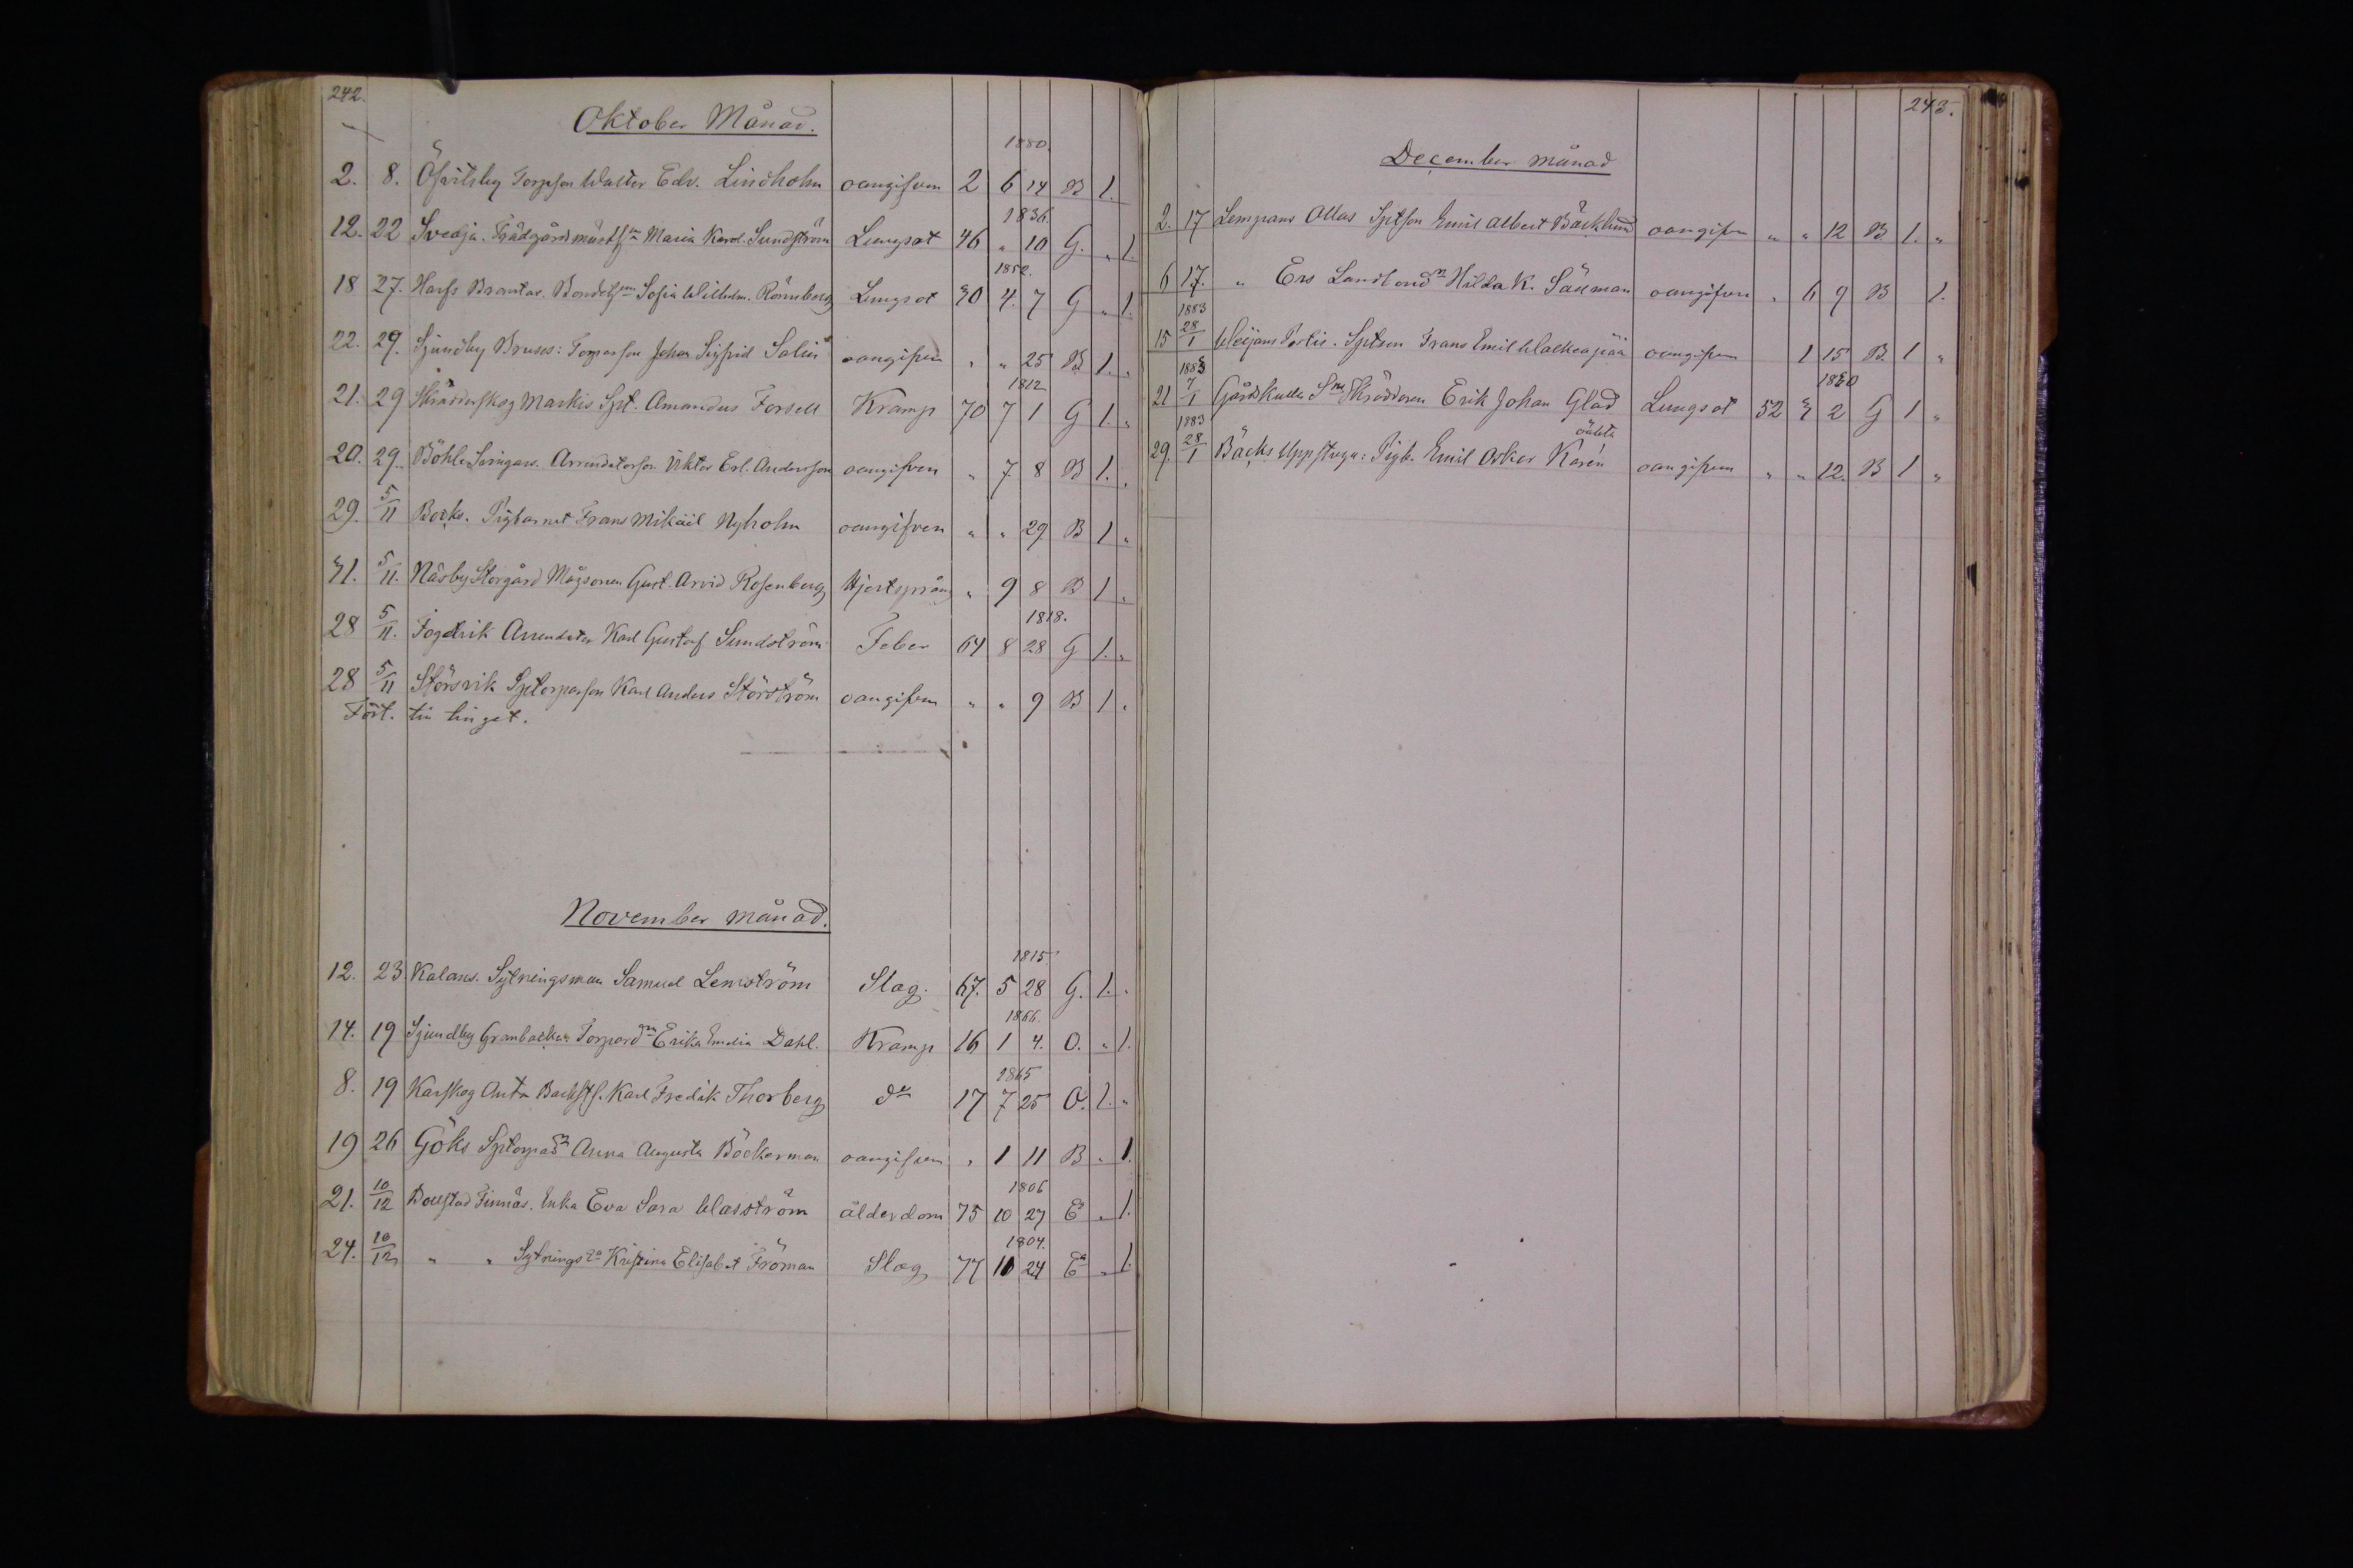 242.
Oktober Månad.
1880.
2. 8. Öfvitsby Torpson Walter Edv. Lindholm oangifven 2 6 14 B 1.
1836.
12. 22 Svedja. Trädgårdmästsn Maria Karol. Sundström Lungsot 46 " 10 G. " 1.
1852.
18 27. Sofia Wilhelm. Rönnberg Lungsot 30 4. 7 G " 1.
22. 29. Sjundby Bruses: Torparson Johan Sigfrid Salin oangifven " " 25 B 1. "
1812
21. 29 Markis Spt. Amandus Forsell Kramp 70 7 1 G 1. "
20. 29. Böhle Arrendatorson Viktor Erl. Andersson oangifven " 7 8 B 1. "
29. 5/11 Böcks. Pigbarnet Frans Mikäil Nyholm oangifven " " 29 B 1 "
31. 5/11. Näsby Storgård Mågsonen Gust. Arvid Rosenberg Hjertsprång " 9 8 B 1 "
1818.
28 5/11. Fagervik Arrendator Karl Gustaf Sundström Feber 64 8 28 G 1. "
28 5/11 Störsvik Sptorparson Karl Anders Störström oangifven " " 9 B 1 "
Fört. till tinget.
November månad.
1815.
12. 23 Kalans. Sytningsman Samuel Lemström Slag. 67. 5 28 G. 1. "
1866.
14. 19 Sjundby Granbacken Torpard:r Erika Emelia Dahl. Kramp 16 1 4. O. " 1.
1865
8. 19 Karskog Karl Fredrik Thorberg do 17 7 25 O. 1. "
19 26 Göks Sptorpad:r Anna Augusta Böckerman oangifven " 1 11 B " 1.
1806
21. 10/12 Finnäs. Enka Eva Sara Wasström ålderdom 75 10 27 E " 1.
1804.
24. 10/12 " " Sytnings Kristina Elisabet Fröman Slag 77 10 24 E " 1.
243.
December månad
2. 17 Lempans Ollas Sptson Emil Albert Bäcklund oangifven " " 12 B 1. "
6 17. " Ers Landbond:r Hilda K. Säll­man oangifven " 6 9 B 1.
1883
15 28/1 Sptson Frans Emil Walkeapää oangifven 1 15 B. 1 "
1883 1830
21 7/1 Gårdskulla Skräddaren Erik Johan Glad Lungsot 52 3 2 G 1 "
1883 oäkta
29. 28/1 Bäcks Uppstugu: Pigb. Emil Oskar Karén oangifven " " 12. B 1 "